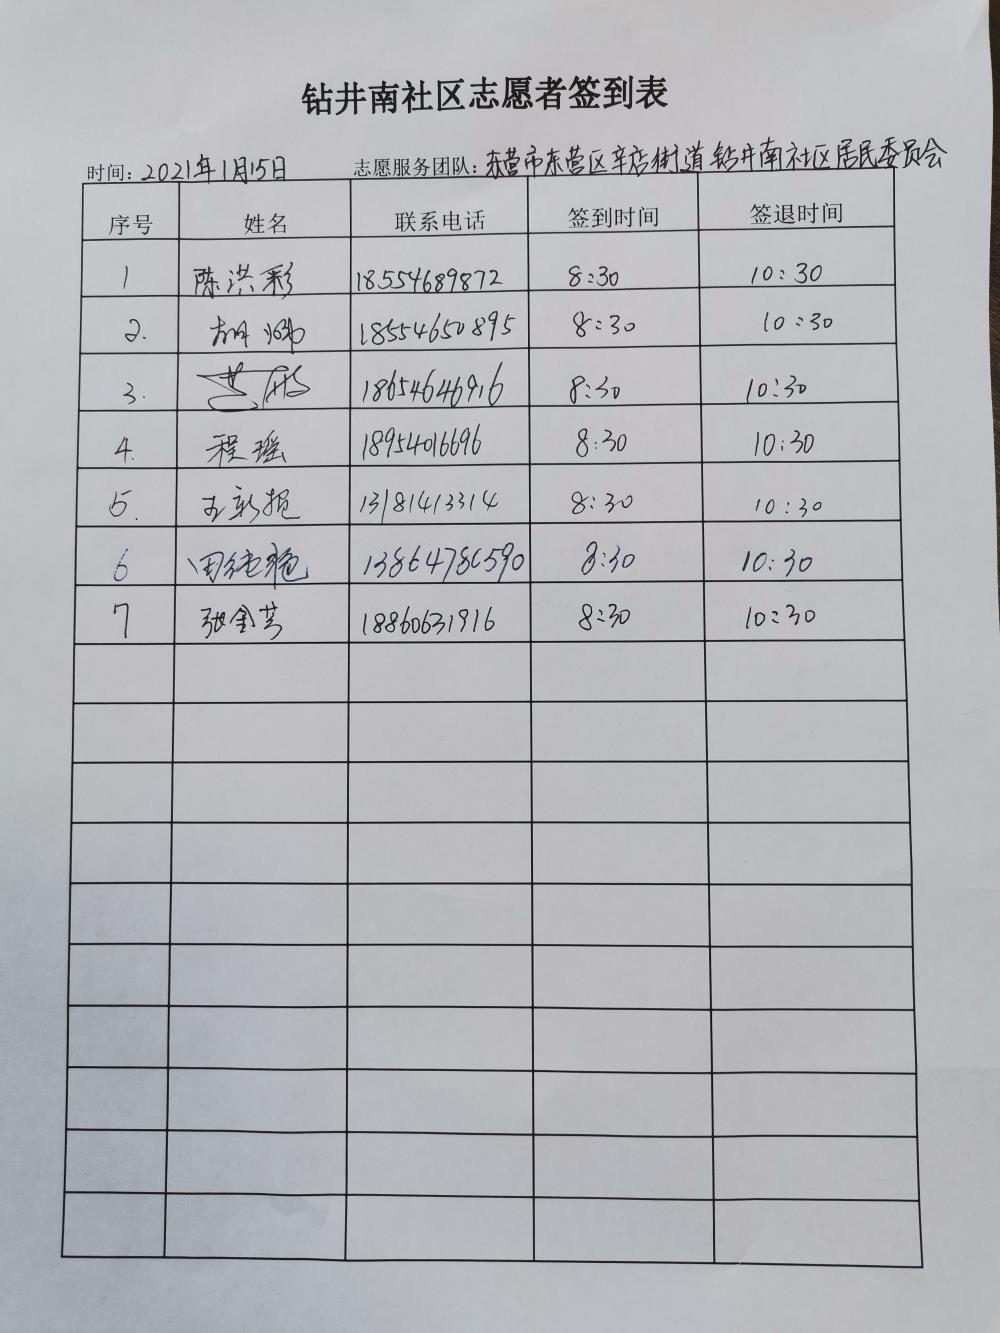 钻井南社区志愿者签到表
时间：2021年1月15日 志愿服务团队：东营市东营区辛店街道钻井南社区居民委员会
序号 姓名 联系电话 签到时间 签退时间
1 陈洪彩 18554689872 8:30 10:30
2. 胡炜 18554650895 8:30 10:30
3. 18654646916 8:30 10:30
4. 程瑶 18954016696 8:30 10:30
5. 王新艳 13181413314 8:30 10:30
6 田纯艳 13864786590 8:30 10:30
7 张金芳 18860631916 8:30 10:30